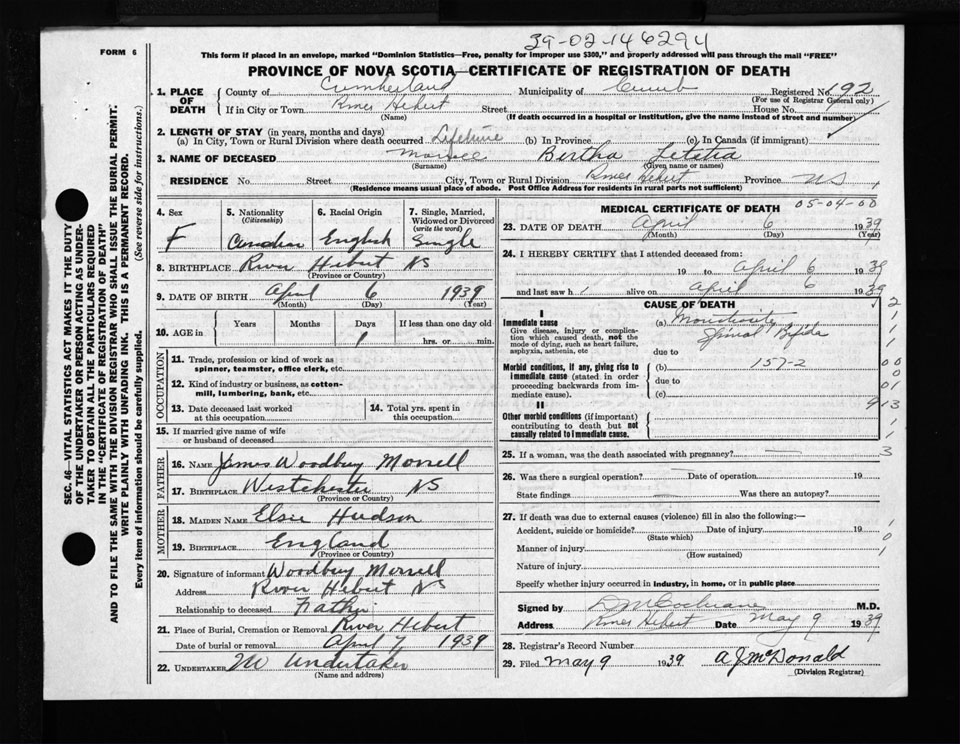 39-02-146294
FORM 6
This form if placed in an envelope, marked "Dominion Statistics—Free, penalty for improper use $300," and properly addressed will pass through the mail "FREE"
PROVINCE OF NOVA SCOTIA—CERTIFICATE OF REGISTRATION OF DEATH
SEC. 46—VITAL STATISTICS ACT MAKES IT THE DUTY
OF THE UNDERTAKER OR PERSON ACTING AS UNDER-
TAKER TO OBTAIN ALL THE PARTICULARS REQUIRED
IN THE "CERTIFICATE OF REGISTRATION OF DEATH"
AND TO FILE THE SAME WITH THE DIVISION REGISTRAR WHO SHALL ISSUE THE BURIAL PERMIT.
WRITE PLAINLY WITH UNFADING INK. THIS IS A PERMANENT RECORD.
Every item of information should be carefully supplied. (See reverse side for instructions.)
1. PLACE OF DEATH
County of Cumberland Municipality of Cumb Registered No. 192
(For use of Registrar General only)
If in City or Town River Hebert Street House No.
(Name) (If death occurred in a hospital or institution, give the name instead of street and number)
2. LENGTH OF STAY (in years, months and days)
(a) In City, Town or Rural Division where death occurred Lifetime (b) In Province (c) In Canada (if immigrant)
3. NAME OF DECEASED Morrell Bertha Letitia
(Surname) (Given name or names)
RESIDENCE No. Street City, Town or Rural Division River Hebert Province NS
(Residence means usual place of abode. Post Office Address for residents in rural parts not sufficient)
4. Sex
F
5. Nationality
(Citizenship)
Canadian
6. Racial Origin
English
7. Single, Married,
Widowed or Divorced
(write the word)
Single
8. BIRTHPLACE River Hebert NS
(Province or Country)
9. DATE OF BIRTH April 6 1939
(Month) (Day) (Year)
10. AGE in
Years Months Days If less than one day old
1 hrs. or min.
OCCUPATION
11. Trade, profession or kind of work as
spinner, teamster, office clerk, etc.
12. Kind of industry or business, as cotton-
mill, lumbering, bank, etc.
13. Date deceased last worked
at this occupation
14. Total yrs. spent in
this occupation
15. If married give name of wife
or husband of deceased
FATHER
16. NAME James Woodbury Morrell
17. BIRTHPLACE Westchester NS
(Province or Country)
MOTHER
18. MAIDEN NAME Elsie Hudson
19. BIRTHPLACE England
(Province or Country)
20. Signature of informant Woodbury Morrell
Address River Hebert NS
Relationship to deceased Father
21. Place of Burial, Cremation or Removal River Hebert
Date of burial or removal April 7 1939
22. UNDERTAKER Undertaker
(Name and address)
MEDICAL CERTIFICATE OF DEATH 05-04-00
23. DATE OF DEATH April 6 1939
(Month) (Day) (Year)
24. I HEREBY CERTIFY that I attended deceased from:
19 to April 6 1939
and last saw h alive on April 6 1939
CAUSE OF DEATH
I
Immediate cause
Give disease, injury or complica-
tion which caused death, not the
mode of dying, such as heart failure,
asphyxia, asthenia, etc
(a) Monstrosity
Spinal Bifida
due to
Morbid conditions, if any, giving rise to
immediate cause (stated in order
proceeding backwards from im-
mediate cause).
(b) 157-2
due to
(c)
II
Other morbid conditions (if important)
contributing to death but not
causally related to immediate cause.
25. If a woman, was the death associated with pregnancy?
26. Was there a surgical operation? Date of operation 19
State findings Was there an autopsy?
27. If death was due to external causes (violence) fill in also the following:—
Accident, suicide or homicide? Date of injury 19
(State which)
Manner of injury
(How sustained)
Nature of injury
Specify whether injury occurred in industry, in home, or in public place
Signed by D M Cochrane M.D.
Address River Hebert Date May 9 1939
28. Registrar's Record Number
29. Filed May 9 1939 A J McDonald
(Division Registrar)